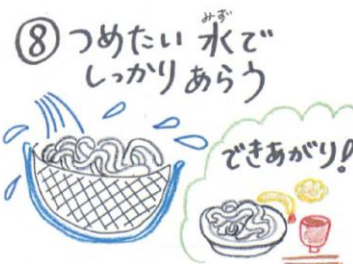 ⑧つめたい水で
みず
しっかりあらう
できあがり!